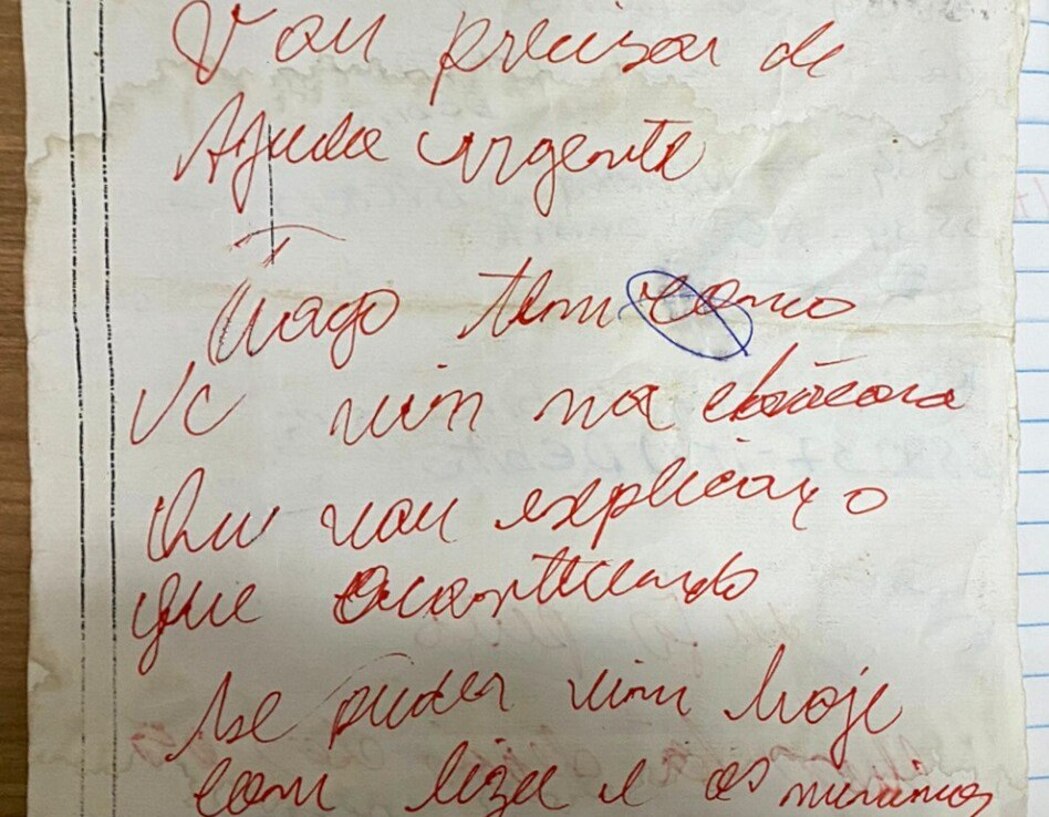 Vou precisar de
Ajuda urgente
Tiago tem como
Vc vim na chácara
Que vou explicar o
que acontecendo
se puder vim hoje
com liza e os meninos